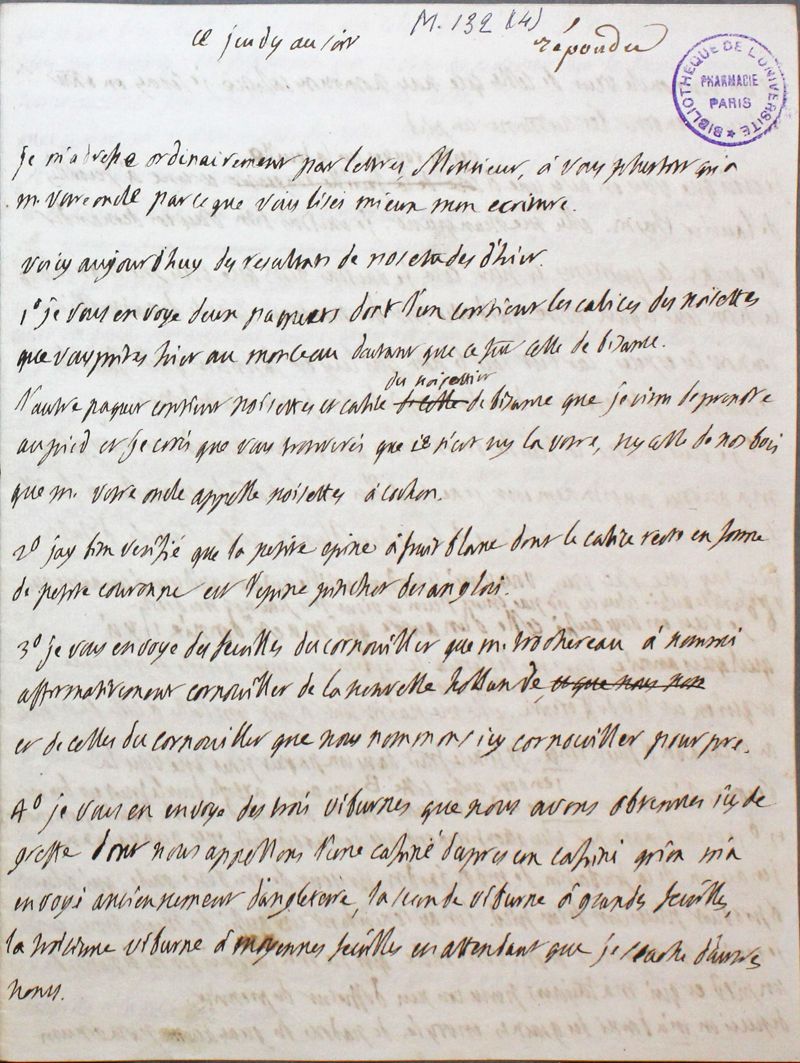 ce jeudy au soir
M. 132 (4)
répondu
BIBLIOTHÈQUE DE L'UNIVERSITÉ
PHARMACIE
PARIS
je m'adresse ordinairement par lettres, Monsieur, à vous plustost qu'a
m. votre oncle parce que vous lisés mieux mon ecriture.
voicy aujourdhuy des resultats de nos etudes d'hier.
1° je vous envoye deux paquets dont l'un contient les calices des noisettes
que vous prites hier au morceau d'autant que ce fut celle de bizance.
l'autre paquet contient noisettes et calice du noisettier de bizance que je viens de prendre
au pied et je crois que vous trouverés que ce n'est ny la votre, ny celle de nos bois
que m. votre oncle appelle noisettes à cochon.
2° jay bien verifié que la petite epine à fruit blanc dont le calice reste en forme
de petite couronne est l'epine pincher des anglois.
3° je vous envoye des feuilles du cornouiller que m. trochereau à nommé
affirmativement cornouiller de la nouvelle hollande et que nous non
et de celles du cornouiller que nous nommons icy cornouiller pourpre.
4° je vous en envoye des trois viburnes que nous avons obtennes icy de
greffe dont nous appellons l'une cassiné d'apres un cassini qu'on m'a
envoyé anciennement d'angleterre, la seconde viburne à grandes feuilles,
la troisieme viburne à moyennes feuilles en attendant que je scache d'autres
noms.